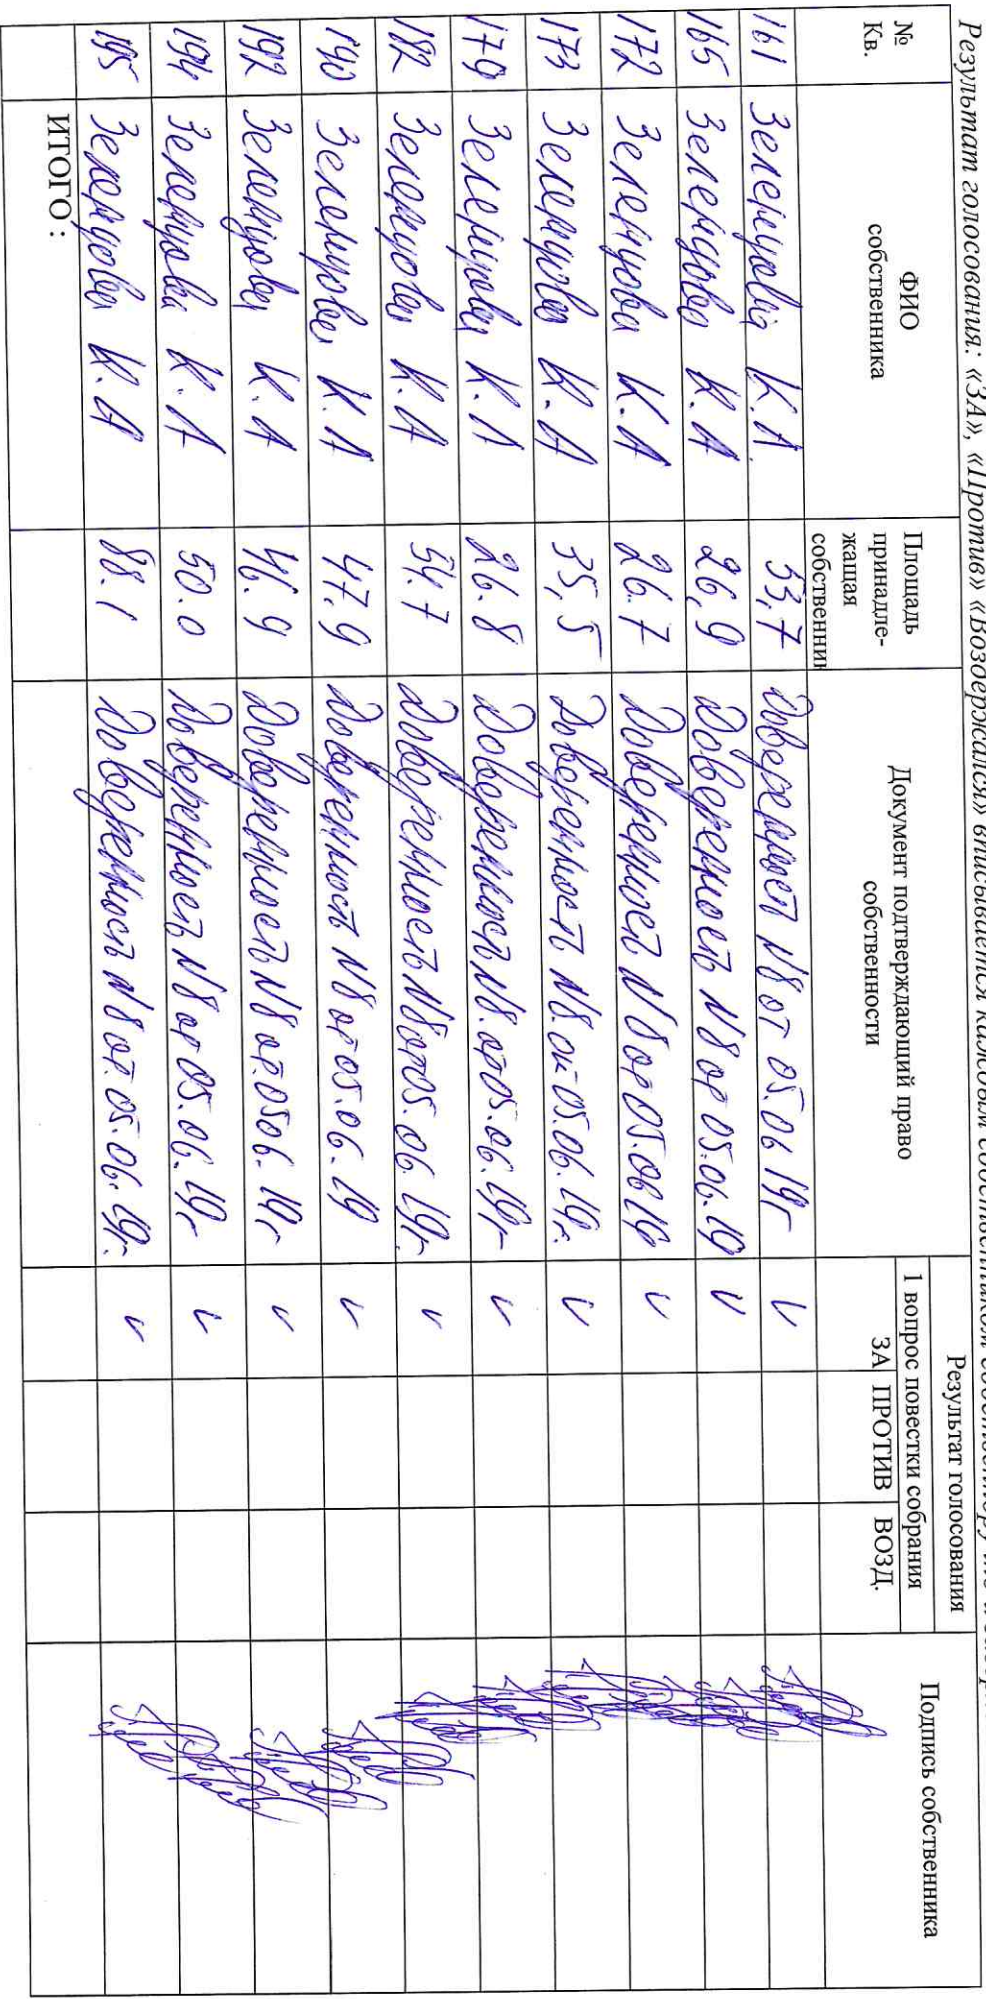 Результат голосования: «ЗА», «Против» «Воздержался» вписывается каждым собственником собственноручно
Результат голосования
№ Кв.
ФИО собственника
Площадь принадле-жащая собственник
Документ подтверждающий право собственности
1 вопрос повестки собрания
Подпись собственника
ЗА ПРОТИВ ВОЗД.
161 Зеленцова К.А. 53,7 Доверенност N8 от 05.06 19г V
165 Зеленцова К.А 26,9 Доверенность N8 от 05.06.19 V
172 Зеленцова К.А 26.7 Доверенность N8 от 05.06 19 V
173 Зеленцова К.А 35,5 Доверенность N8. от 05.06.19г. V
179 Зеленцова К.А 26.8 Доверенность N8. от 05.06.19г V
182 Зеленцова К.А 54.7 Доверенность N8 от 05.06 19г. V
190 Зеленцова К.А 47,9 Доверенность N8 от 05.06.19 V
192 Зеленцова К.А 46.9 Доверенность N8 от 05 06. 19г V
194 Зеленцова К.А 50.0 Доверенность N8 от 05.06.19г V
195 Зеленцова К.А 88.1 Доверенность N8 от. 05.06.19г. V
ИТОГО: